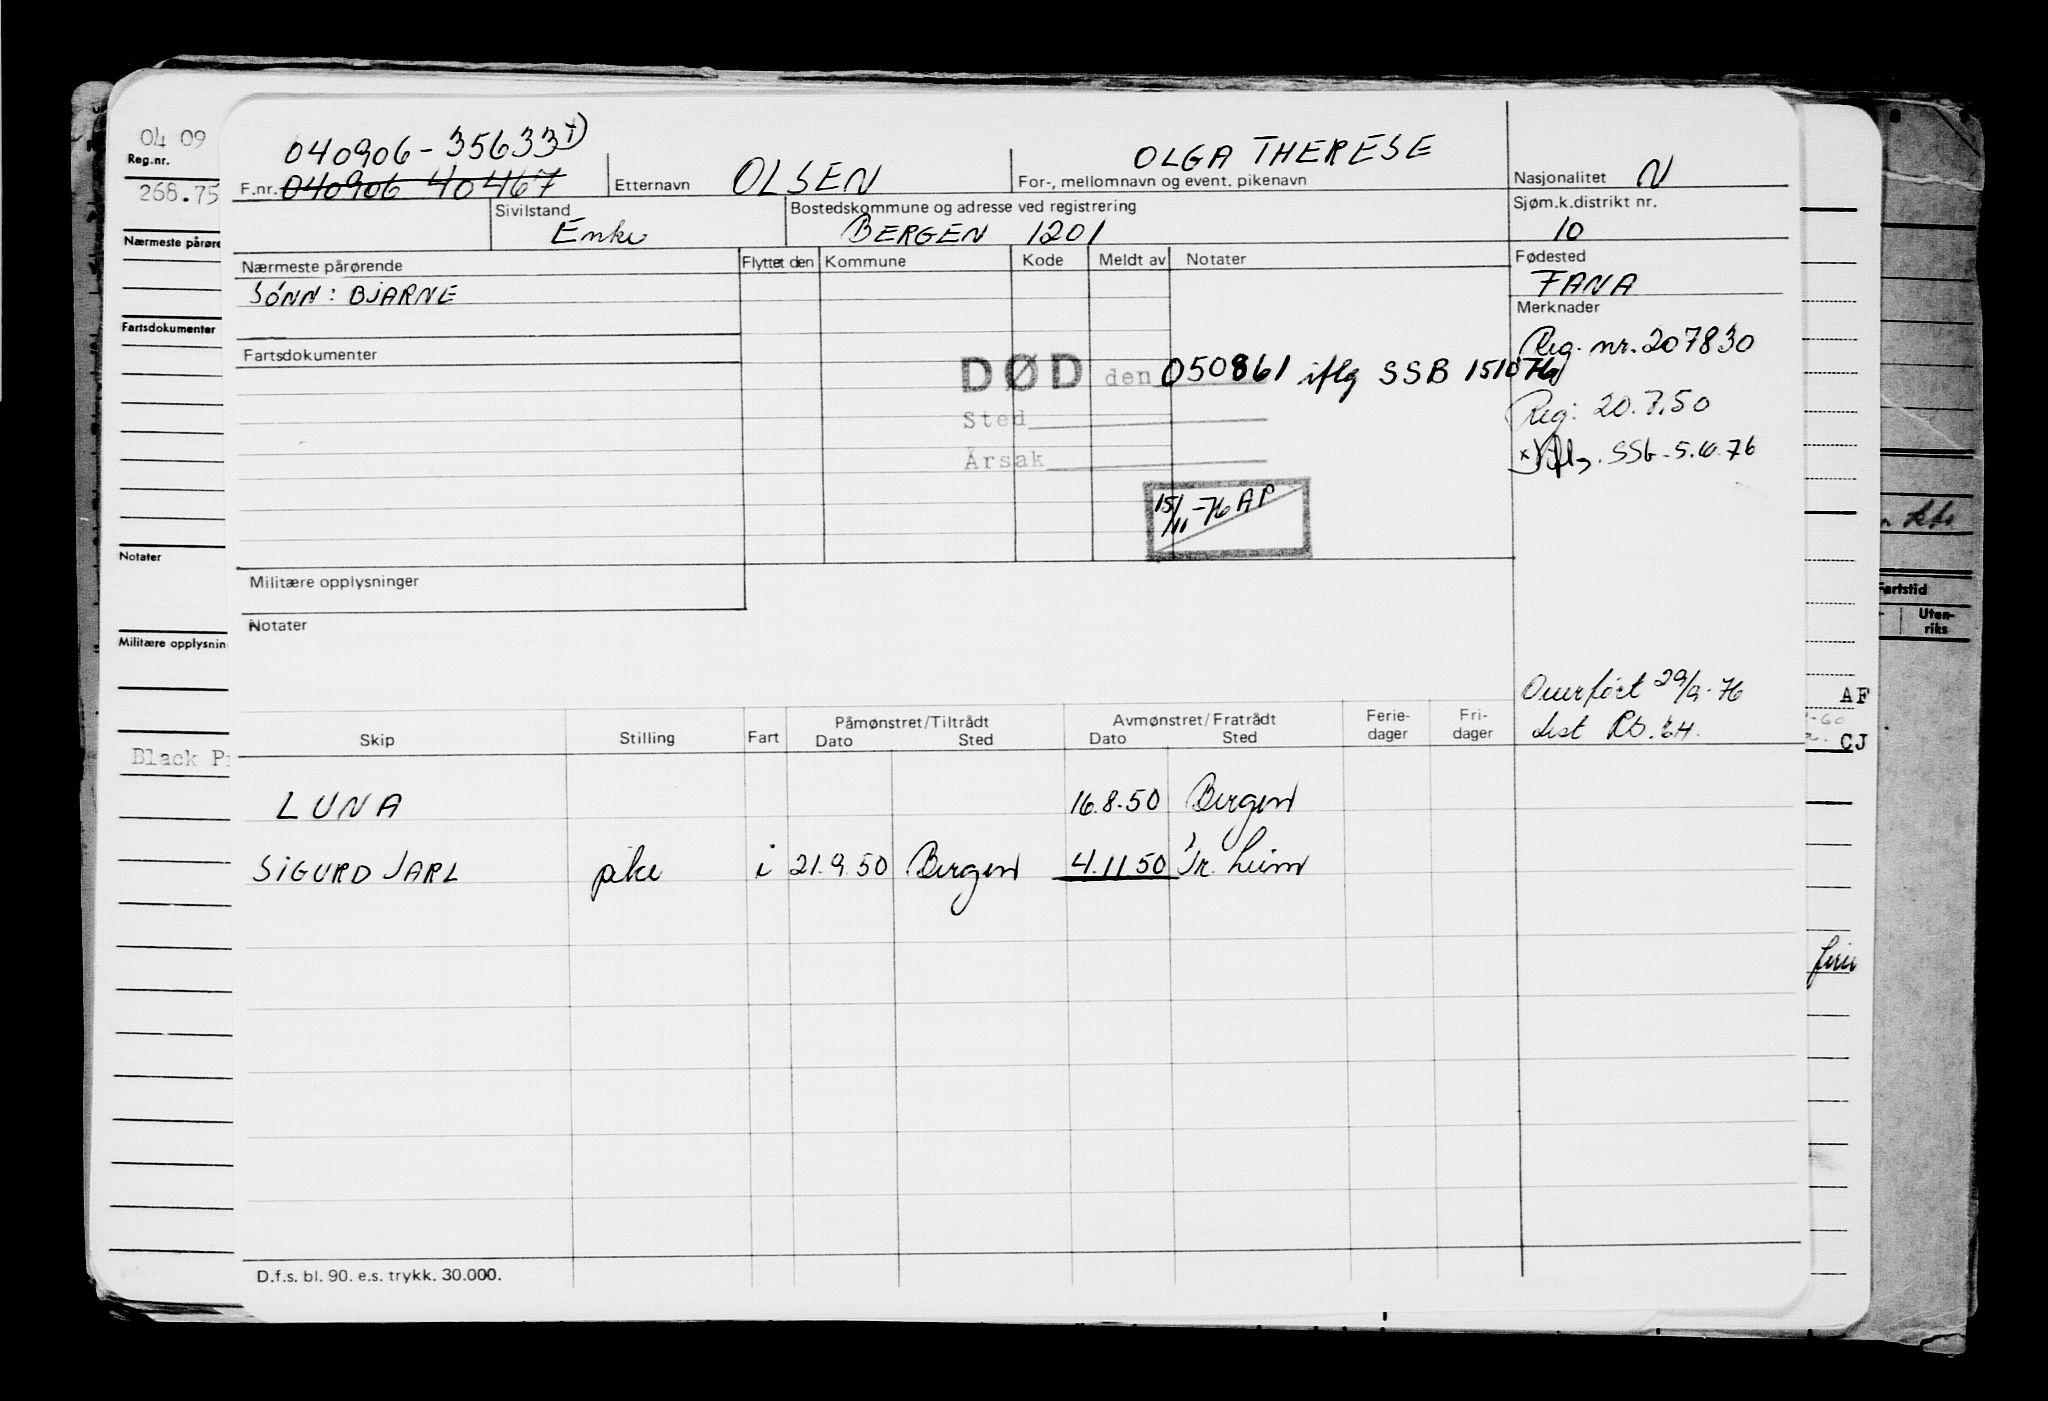 04 09
Reg.nr.
268.75
Nærmeste pårøre
Fartsdokumenter
Notater
Militære opplysnin
Black Pr
040906-35633 x)
F.nr. 040906 40467
Etternavn OLSEN
OLGA THERESE
For-, mellomnavn og event. pikenavn
Nasjonalitet N
Sivilstand
Enke
Bostedskommune og adresse ved registrering
BERGEN 1201
Sjøm.k.distrikt nr.
10
Nærmeste pårørende
SØNN: BJARNE
Flyttet den Kommune Kode Meldt av Notater
Fødested
FANA
Merknader
Reg. nr. 207830
Fartsdokumenter
DØD den 050861 iflg SSB 151076
Sted
Årsak
Reg: 20.7.50
x) Iflg. SSb - 5.10.76
15/11-76 AP
Militære opplysninger
Notater
Overført 29/9-76
Skip Stilling Fart Påmønstret/Tiltrådt Dato Sted Avmønstret/Fratrådt Dato Sted Ferie-dager Fri-dager
LUNA 16.8.50 Bergen
SIGURD JARL pike i 21.9.50 Bergen 4.11.50 Tr.heim
D.f.s. bl. 90. e.s. trykk. 30.000.
Fartstid
Uten-
riks
AF
CJ